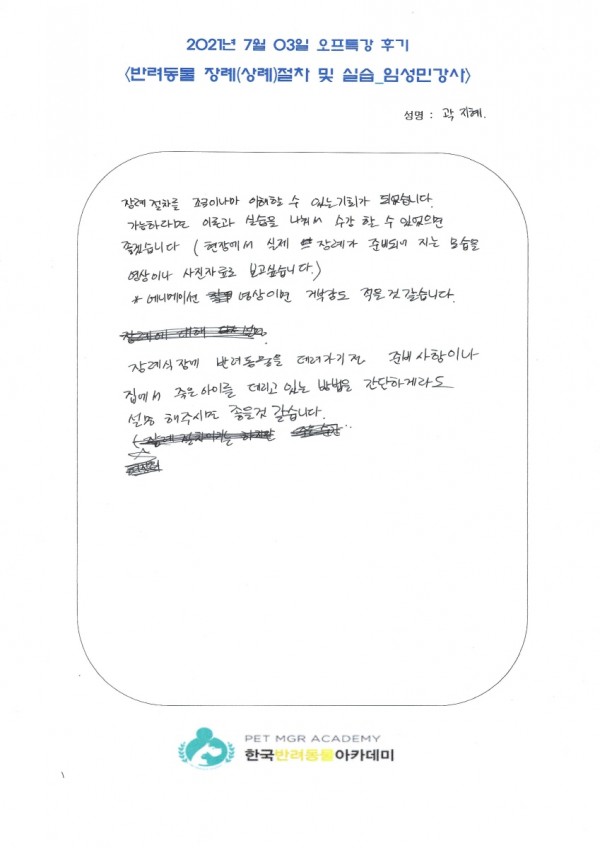 2021년 7월 03일 오프특강 후기
<반려동물 장례(상례)절차 및 실습_임성민강사>
성명 : 곽지혜.
장례 절차를 조금이나마 이해할 수 있는기회가 되었습니다.
가능하다면 이론과 실습을 나눠서 수강 할 수 있었으면
좋겠습니다 ( 현장에서 실제 장례가 준비되어 지는 모습을
영상이나 사진자료로 보고싶습니다.)
* 애니메이션 영상이면 거부감도 적을것 같습니다.
장례에 대해
장례식장에 반려동물을 데려가기전 준비사항이나
집에서 죽은아이를 데리고 있는 방법을 간단하게라도
설명 해주시면 좋을것 같습니다.
PET MGR ACADEMY
한국반려동물아카데미